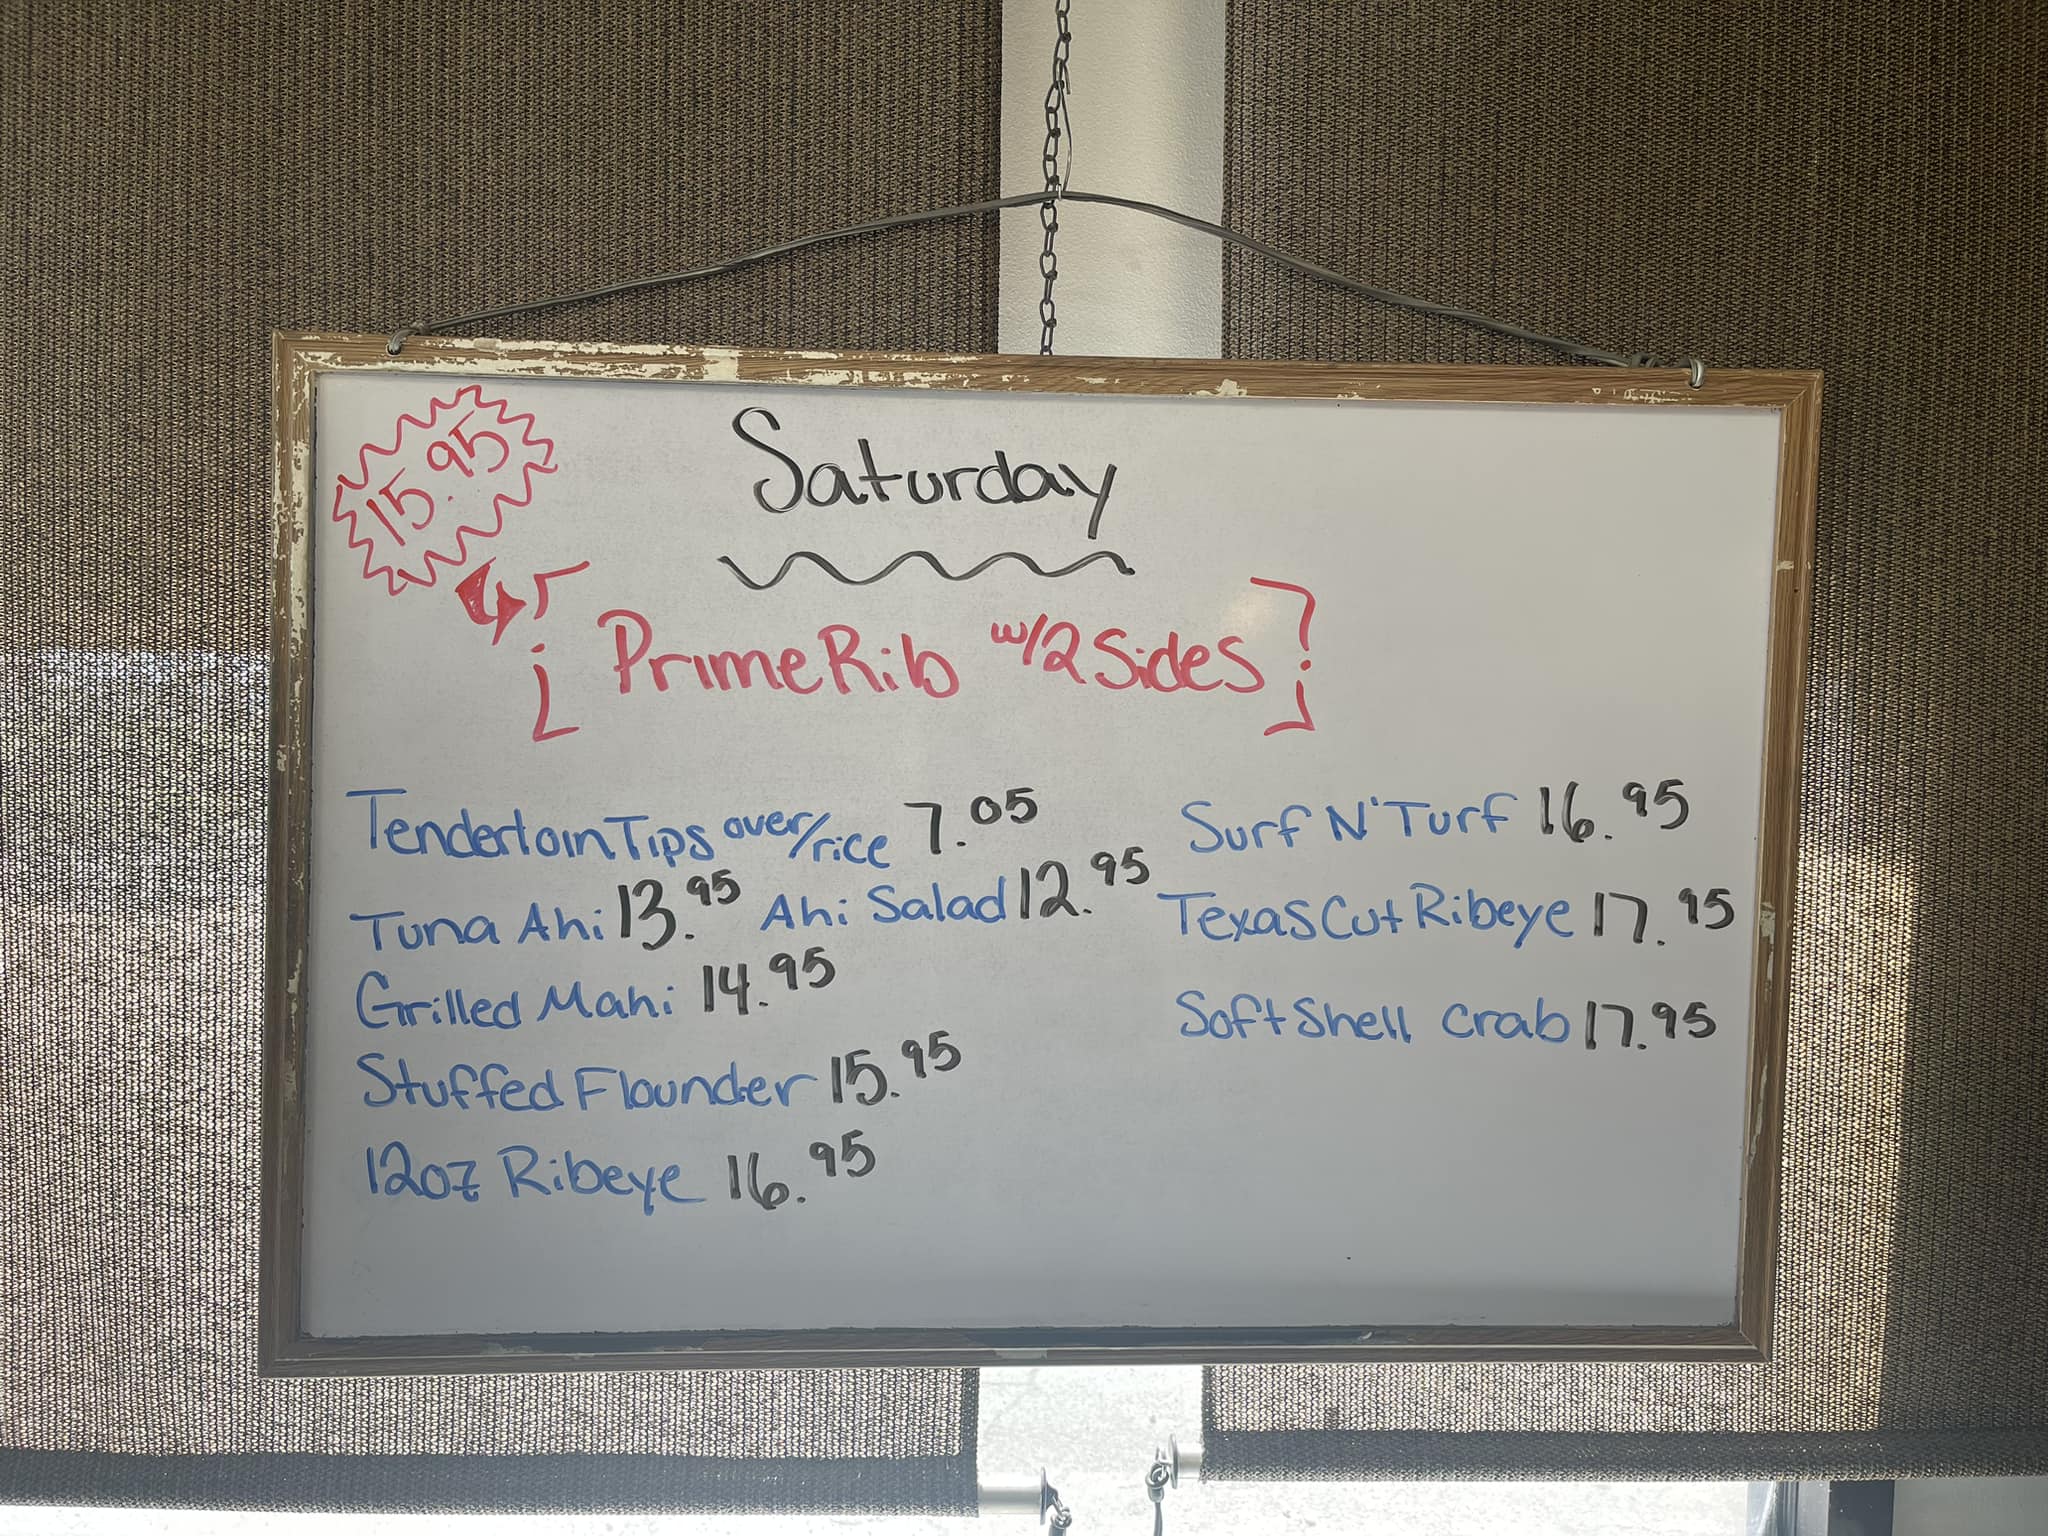 15.95
Saturday
Prime Rib w/2 Sides
Tenderloin Tips over/rice 7.05
Tuna Ahi 13.95 Ahi Salad 12.95
Grilled Mahi 14.95
Stuffed Flounder 15.95
12oz Ribeye 16.95
Surf N' Turf 16.95
Texas Cut Ribeye 17.95
Soft Shell Crab 17.95